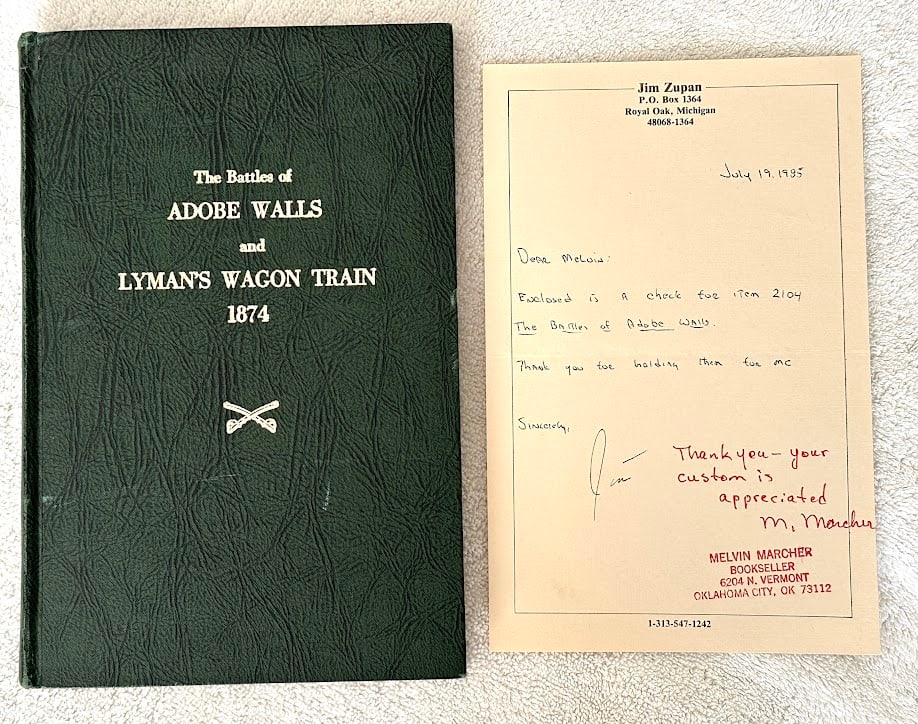 The Battles of
ADOBE WALLS
and
LYMAN'S WAGON TRAIN
1874
Jim Zupan
P.O. Box 1364
Royal Oak, Michigan
48068-1364
July 19, 1995
Dear Melvin:
Enclosed is a check for item 2104
The Battles of Adobe Walls.
Thank you for holding them for me
Sincerely,
Jim
Thank you - your
custom is
appreciated
M. Marcher
MELVIN MARCHER
BOOKSELLER
6204 N. VERMONT
OKLAHOMA CITY, OK 73112
1-313-547-1242